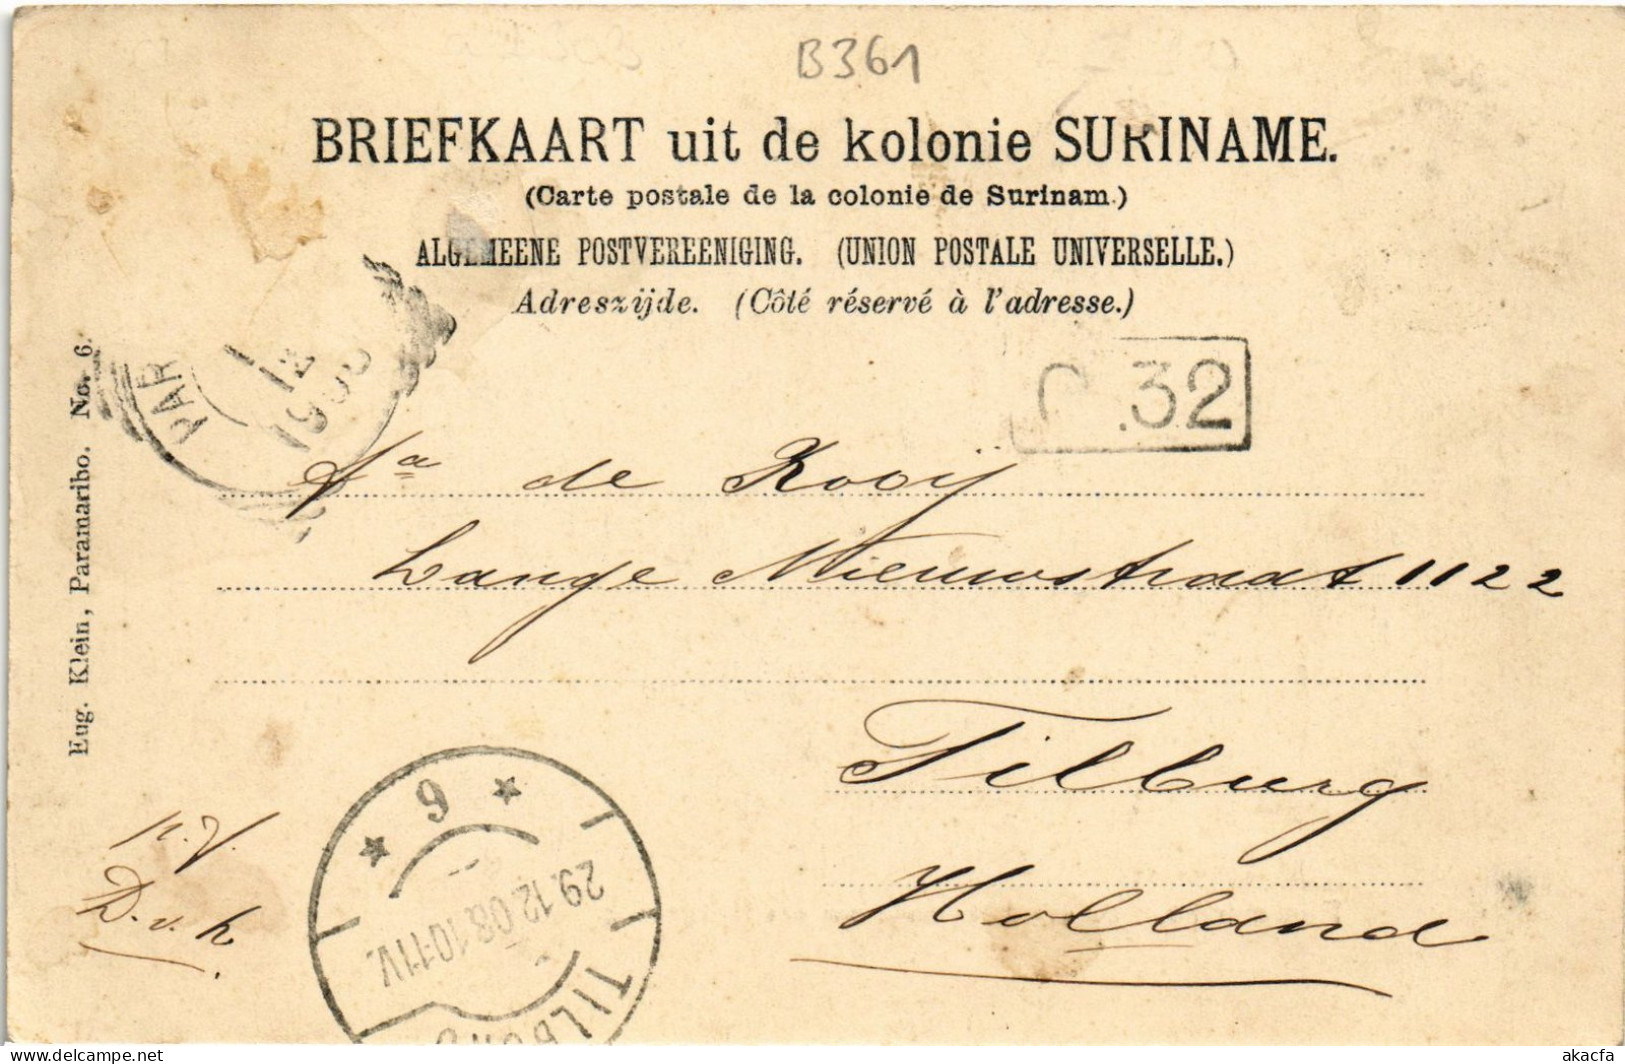 B361
BRIEFKAART uit de kolonie SURINAME.
(Carte postale de la colonie de Surinam.)
ALGEMEENE POSTVEREENIGING. (UNION POSTALE UNIVERSELLE.)
Adreszijde. (Côté réservé à l'adresse.)
Eug. Klein, Paramaribo. No. 6.
PAR
12
.32
de Kooij
Lange Nieuwstraat 1122
Tilburg
Holland
D. v. h.
6
29.12.08.10-11V.
TILBURG
akacfa